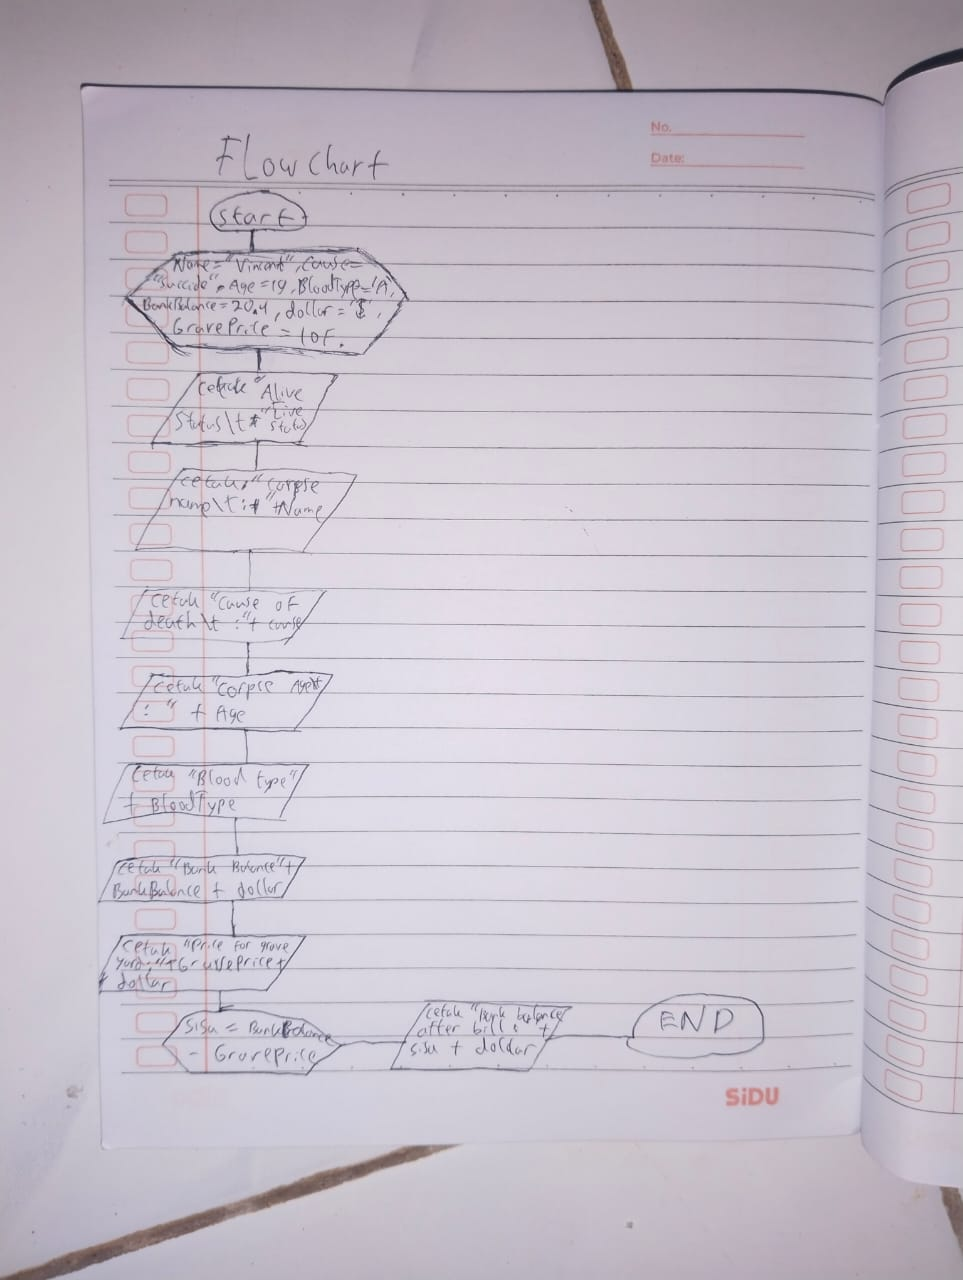 No.
Date:
Flowchart
Start
Name = "Vincent", cause =
"Suicide", Age = 19, BloodType = 'A',
BankBalance = 20.4, dollar = '$',
GravePrice = 10F.
cetak "Alive
Status\t "Live
Status
cetak "Corpse
name\t : " + Name
cetak "Cause of
death\t : " + cause
cetak "Corpse Age\t
: " + Age
Cetak "Blood type"
+ BloodType
cetak "Bank Balance" +
BankBalance + dollar
Cetak "Price for grave
yard:" + GravePrice +
dollar
Sisa = BankBalance
- GravePrice
cetak "Bank balance
after bill : +
sisa + dollar
END
SiDU